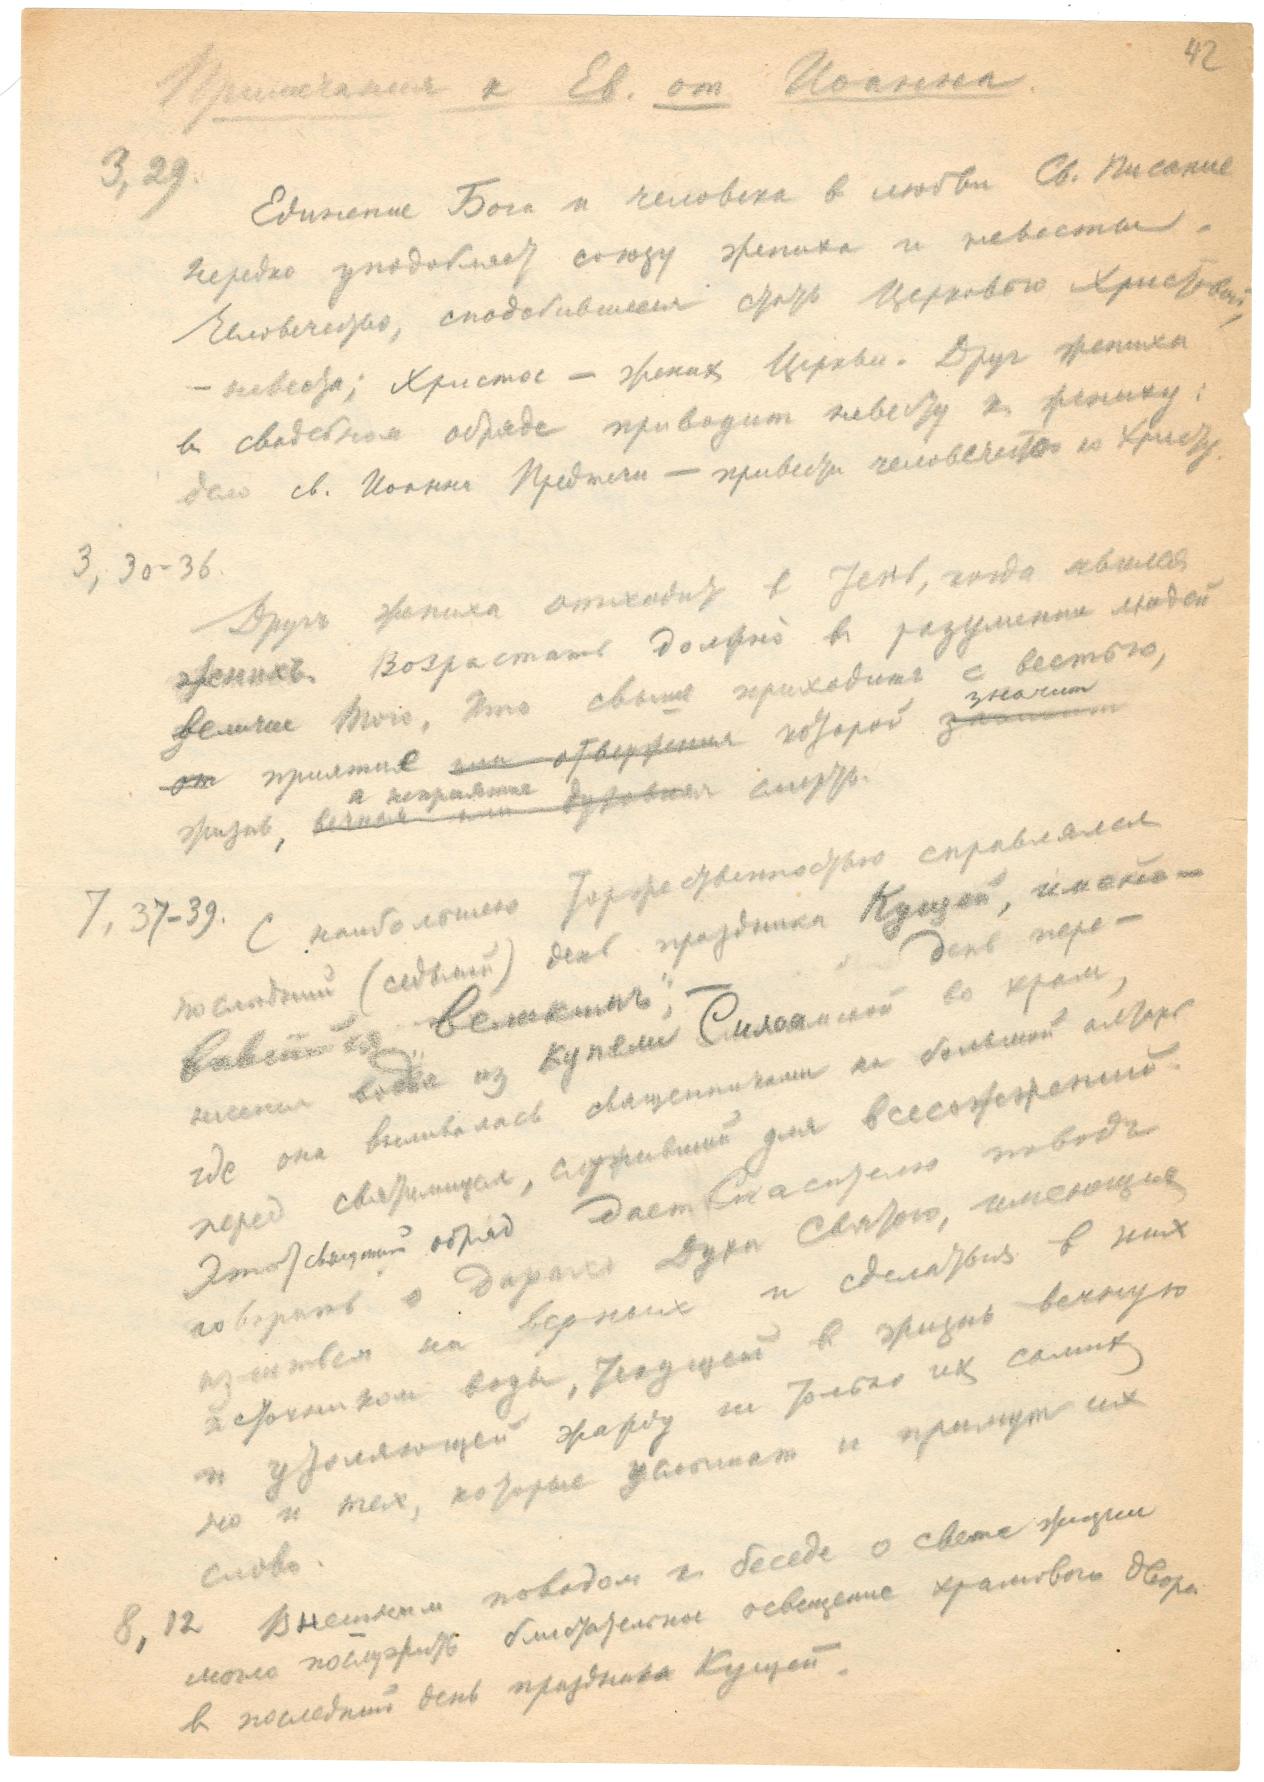 42
Примечания к Ев. от Иоанна.
3, 29.
Единение Бога и человека в любви Св. Писание
нередко уподобляет союзу жениха и невесты.
Человечество, сподобившееся стать Церковью Христовой,
– невеста; Христос – жених Церкви. Друг жениха
в свадебном обряде приводит невесту к жениху:
дело св. Иоанна Предтечи – привести человечество ко Христу.
3, 30-36.
Другъ жениха отходит в тень, когда явился
женихъ. Возрастать должно в разумении людей
величие Того, Кто свыше приходитъ с вестью,
значит
от приятие или отвержения которой
а неприятие
жизнь, вечная или духовная смерть.
7, 37-39. С наибольшею торжественностью справлялся
последний (седьмой) день праздника Кущей, имено-
вавшийся „Великимъ“; день пере-
несения воды из купели Силоамской во храм,
где она выливалась священниками на большой алтарь
перед святилищем, служивший для всесожжений.
Этот священный обряд дает Спасителю поводъ
говорить о дарахъ Духа Святого, имеющих
излиться на верных и сделаться в них
источником воды, текущей в жизнь вечную
и утоляющей жажду не только их самих
но и тех, которые услышат и примут их
слово.
8, 12 Внешним поводом к беседе о свете жизни
могло послужить блистательное освещение храмового двора
в последний день праздника Кущей.